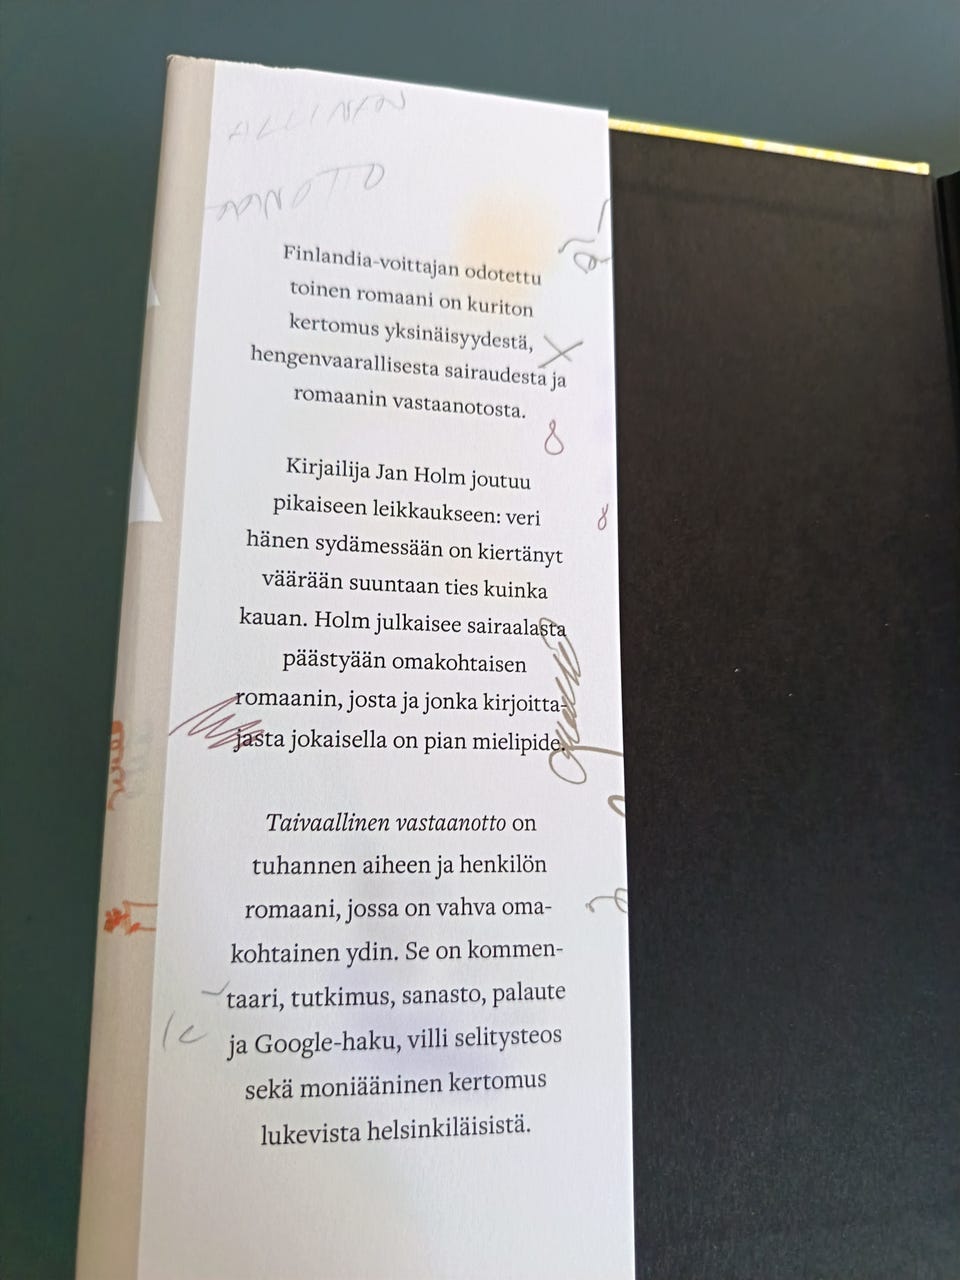 ALLINEN
AANOTTO
Finlandia-voittajan odotettu
toinen romaani on kuriton
kertomus yksinäisyydestä,
hengenvaarallisesta sairaudesta ja
romaanin vastaanotosta.
Kirjailija Jan Holm joutuu
pikaiseen leikkaukseen: veri
hänen sydämessään on kiertänyt
väärään suuntaan ties kuinka
kauan. Holm julkaisee sairaalasta
päästyään omakohtaisen
romaanin, josta ja jonka kirjoitta-
jasta jokaisella on pian mielipide.
Taivaallinen vastaanotto on
tuhannen aiheen ja henkilön
romaani, jossa on vahva oma-
kohtainen ydin. Se on kommen-
taari, tutkimus, sanasto, palaute
ja Google-haku, villi selitysteos
sekä moniääninen kertomus
lukevista helsinkiläisistä.